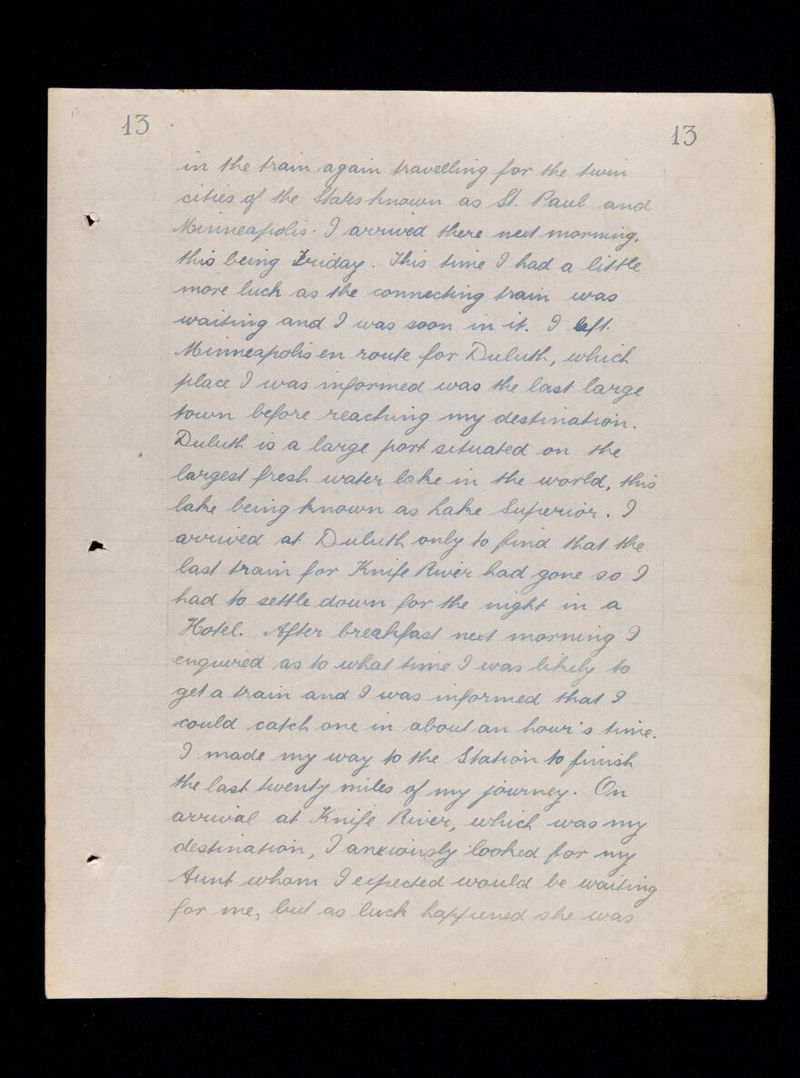 13 13
in the train again travelling for the twin
cities of the States known as St. Paul and
Minneapolis. I arrived there next morning,
this being Friday. This time I had a little
more luck as the connecting train was
waiting and I was soon in it. I left
Minneapolis en route for Duluth, which
place I was informed was the last large
town before reaching my destination.
Duluth is a large port situated on the
largest fresh water lake in the world, this
lake being known as Lake Superior. I
arrived at Duluth only to find that the
last train for Knife River had gone so I
had to settle down for the night in a
Hotel. After breakfast next morning I
enquired as to what time I was likely to
get a train and I was informed that I
could catch one in about an hour's time.
I made my way to the Station to finish
the last twenty miles of my journey. On
arrival at Knife River, which was my
destination, I anxiously looked for my
Aunt whom I expected would be waiting
for me, but as luck happened she was